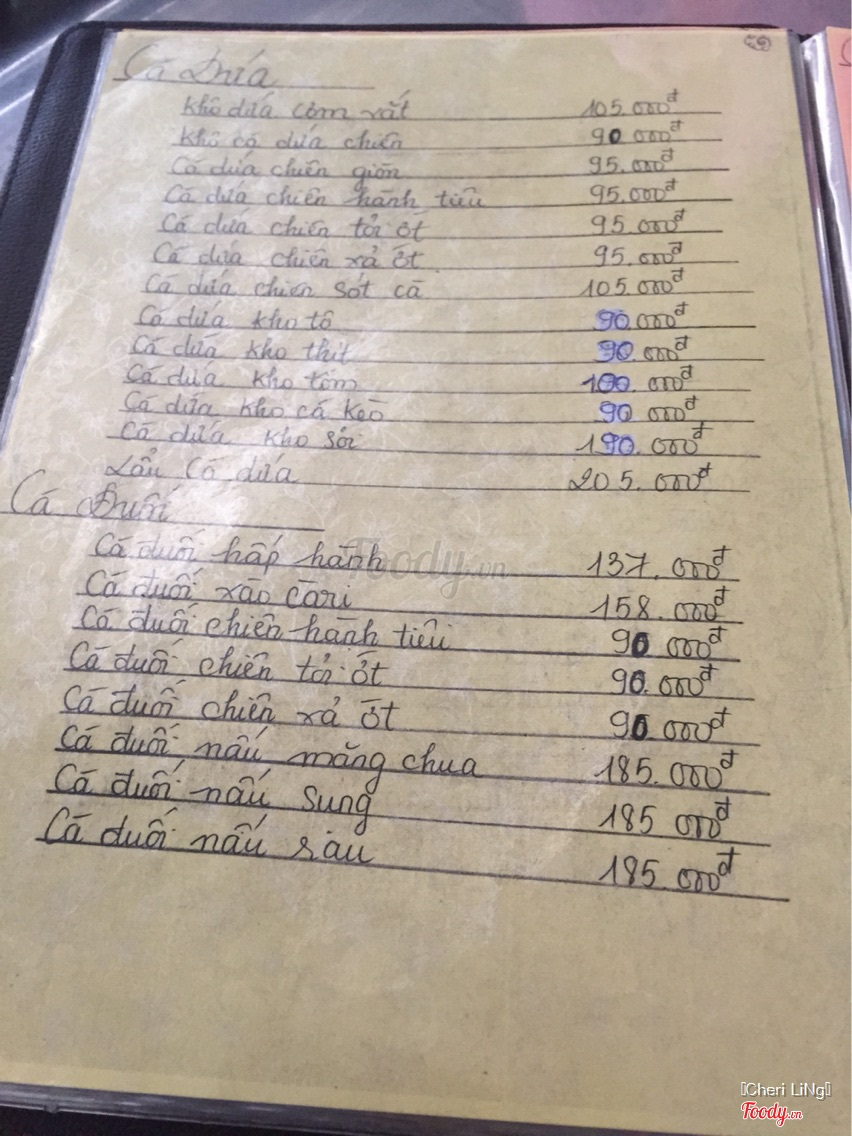 Cá Dứa
Khô dứa cơm vắt 105.000đ
Khô cá dứa chiên 90 000đ
Cá dứa chiên giòn 95.000đ
Cá dứa chiên hành tiêu 95.000đ
Cá dứa chiên tỏi ớt 95.000đ
Cá dứa chiên xả ớt 95.000đ
Cá dứa chiên sốt cà 105.000đ
Cá dứa kho tộ 90.000đ
Cá dứa kho thịt 90.000đ
Cá dứa kho tôm 100.000đ
Cá dứa kho cá kèo 90 000đ
Cá dứa kho sỏi 190.000đ
Lẩu Cá dứa 205.000đ
Cá Đuối
Cá đuối hấp hành 137.000đ
Cá đuối xào càri 158.000đ
Cá đuối chiên hành tiêu 90 000đ
Cá đuối chiên tỏi ớt 90.000đ
Cá đuối chiên xả ớt 90 000đ
Cá đuối nấu măng chua 185.000đ
Cá đuối nấu sung 185 000đ
Cá đuối nấu rau 185.000đ
Foody.vn
[Cheri LiNg]
Foody.vn